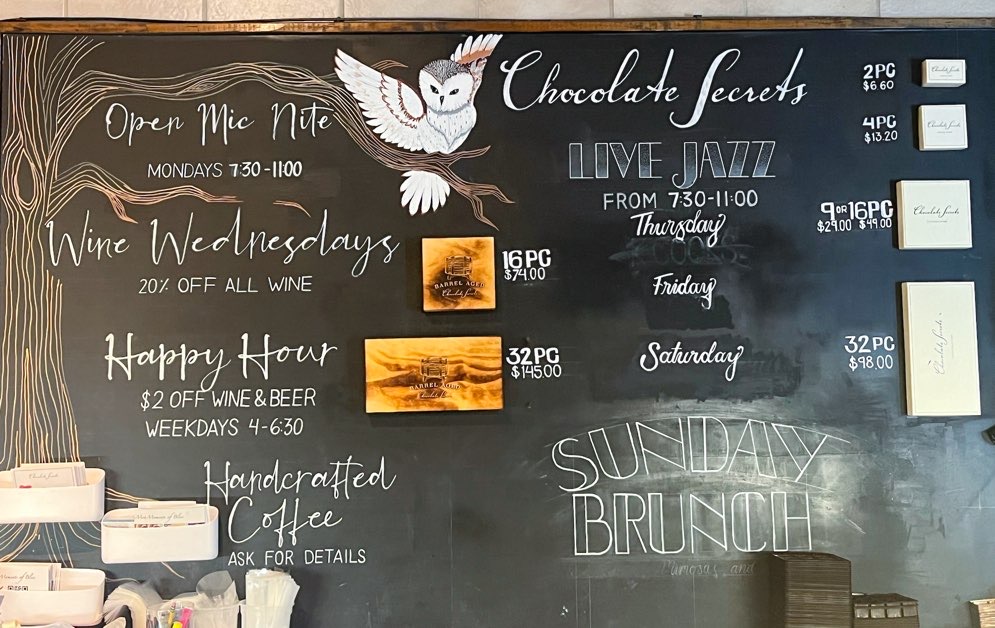 Open Mic Nite
MONDAYS 7:30-11:00
Wine Wednesdays
20% OFF ALL WINE
Happy Hour
$2 OFF WINE & BEER
WEEKDAYS 4-6:30
Handcrafted
Coffee
ASK FOR DETAILS
16PC
$74.00
BARREL AGED
Chocolate Secrets
32PC
$145.00
BARREL AGED
Chocolate Secrets
Chocolate Secrets
LIVE JAZZ
FROM 7:30-11:00
Thursday
Friday
Saturday
SUNDAY
BRUNCH
Mimosas and
2PC
$6.60
Chocolate Secrets
4PC
$13.20
Chocolate Secrets
9 OR 16PC
$29.00 $49.00
Chocolate Secrets
32PC
$98.00
Chocolate Secrets
Chocolate Secrets